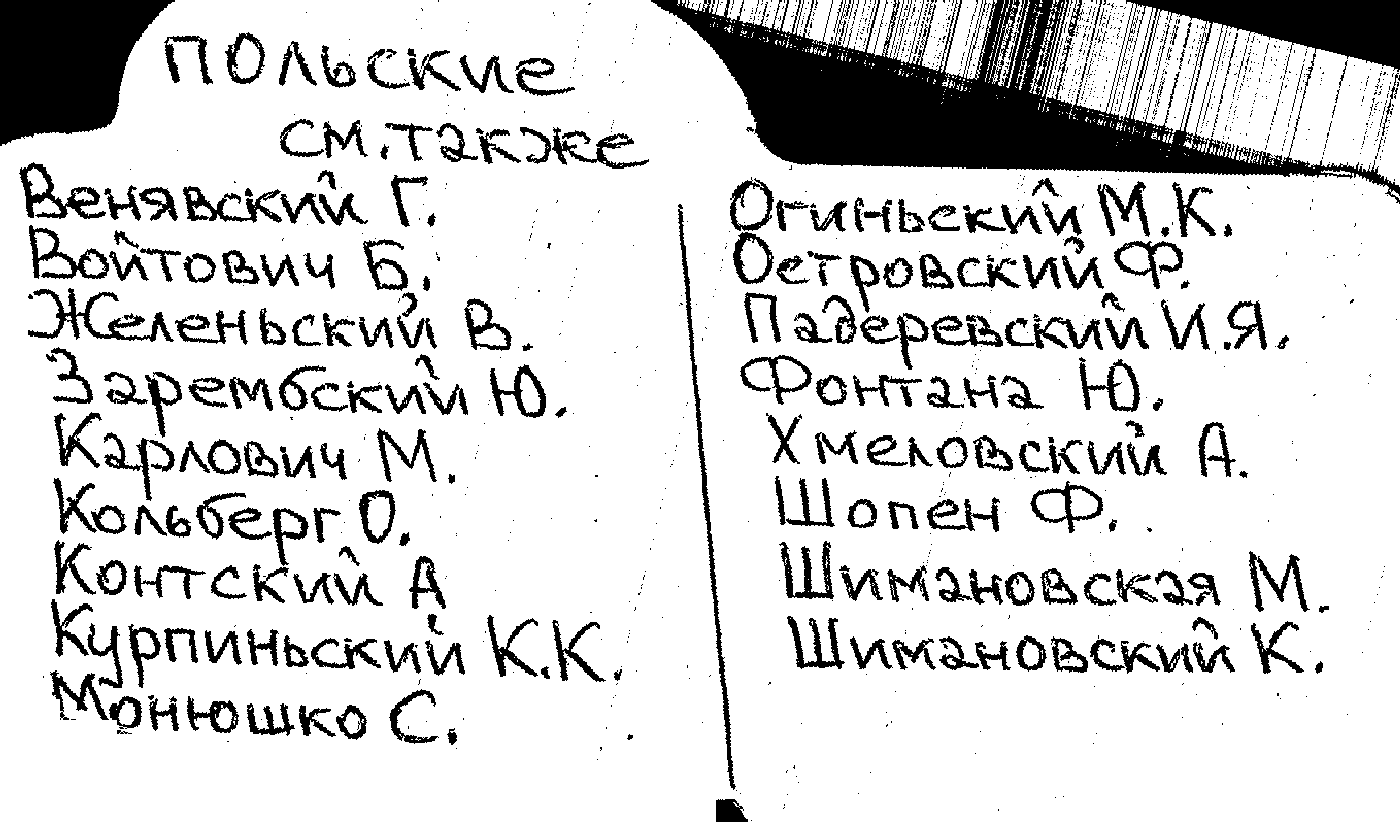 польские
см. также
Венявский Г.
Войтович Б.
Желеньский В.
Зарембский Ю.
Карлович М.
Кольберг О.
Контский А
Курпиньский К.К.
Монюшко С.
Огиньский М.К.
Островский Ф.
Падеревский И.Я.
Фонтана Ю.
Хмеловский А.
Шопен Ф.
Шимановская М.
Шимановский К.